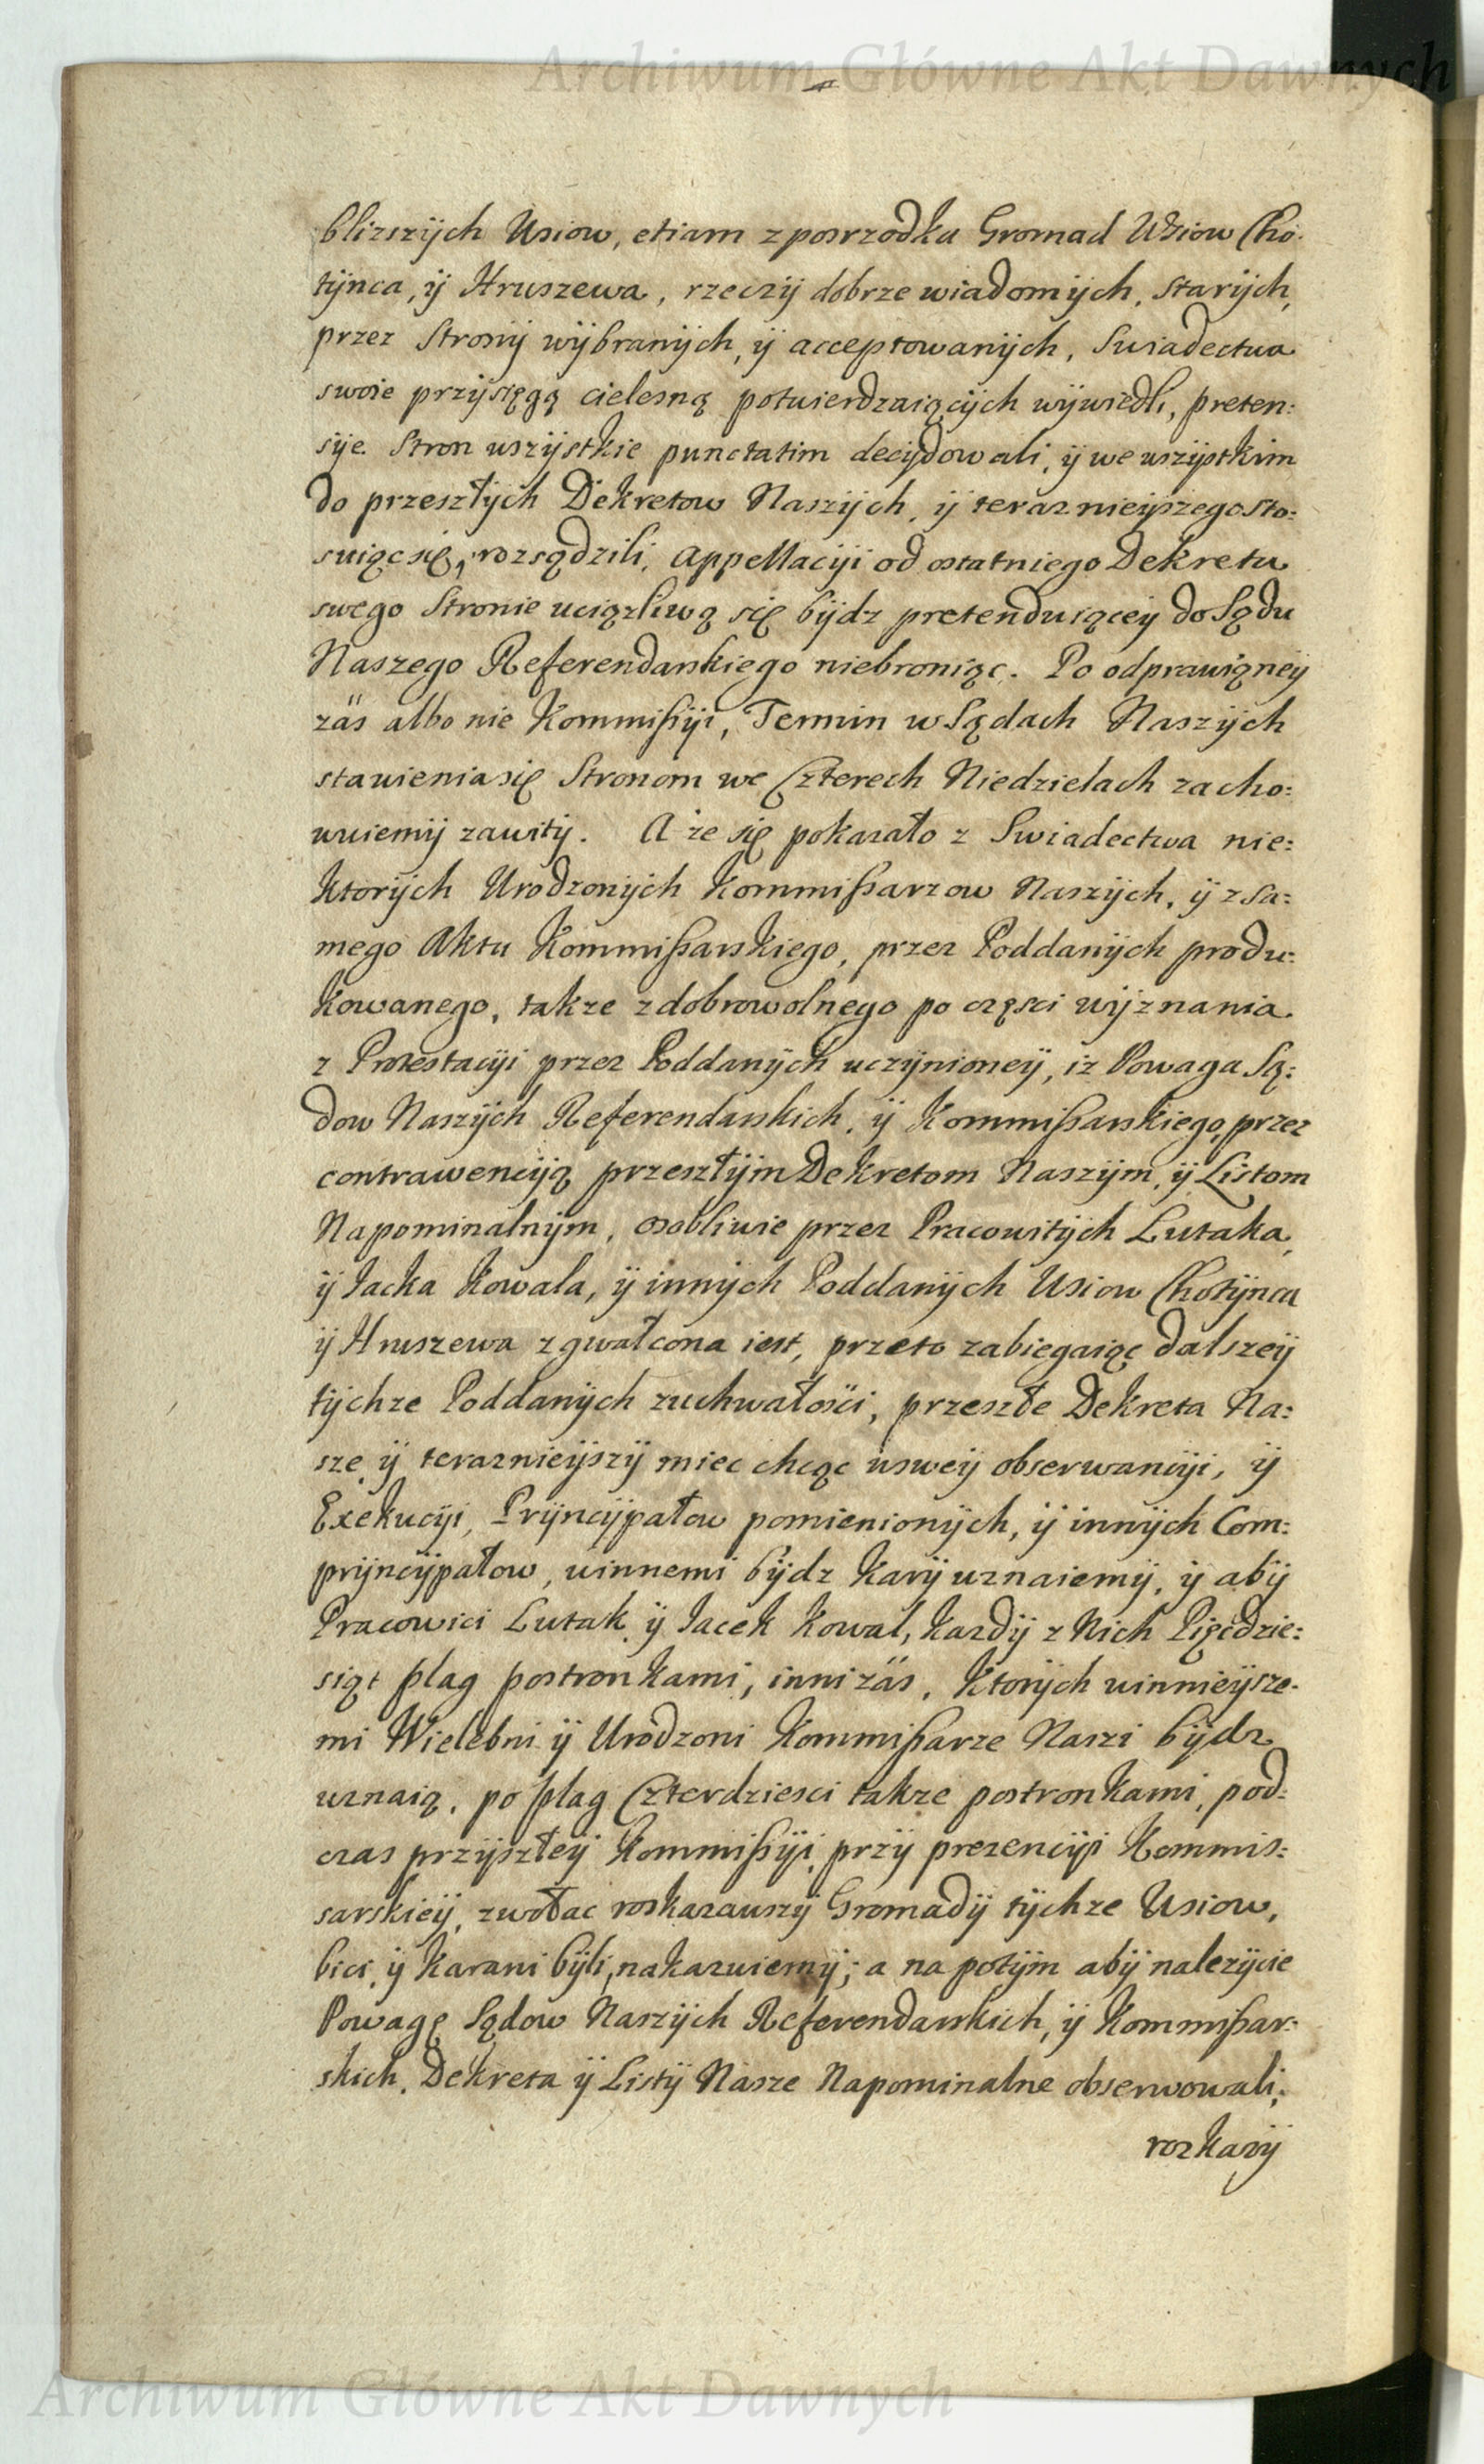 Archiwum Główne Akt Dawnych
blizszÿch Wsiow, etiam z posrzodku Gromad Wsiow Cho:
tÿnca, ÿ Hruszewa, rzeczÿ dobrze wiadomÿch, starÿch,
przez Stronÿ wÿbranÿch, ÿ acceptowanÿch, Swiadectwa
swoie przÿsięgą cielesną potwierdzaiącÿch wÿwiedli, preten:
sÿe Stron wszÿstkie punctatim decÿdowali, ÿ we wszÿstkim
do przeszłÿch Dekretow Naszÿch, ÿ teraznieÿszego sto:
suiąc się, rozsądzili, appellacÿi od ostatniego Dekretu
swego Stronie uciązliwą się bÿdz pretenduiąceÿ do Sądu
Naszego Referendarskiego niebroniąc. Po odprawioneÿ
zäs albo nie Kommissÿi, Termin w Sądach Naszÿch
stawienia się Stronom we Czterech Niedzielach zacho:
wuiemÿ zawitÿ. A ze się pokazało z Swiadectwa nie:
ktorÿch Urodzonÿch Kommissarzow Naszÿch, ÿ z sa:
mego Aktu Kommissarskiego, przez Poddanÿch produ:
kowanego, takze z dobrowolnego po częsci wÿznania
z Protestacÿi przez Poddanÿch uczÿnioneÿ, iz Powaga Są:
dow Naszÿch Referendarskich, ÿ Kommissarskiego, przez
contrawencÿą przeszłÿm Dekretom Naszÿm, ÿ Listom
Napominalnÿm, osobliwie przez Pracowitÿch Lutaka,
ÿ Jacka Kowala, ÿ innÿch Poddanÿch Wsiow Chotÿnca
ÿ Hruszewa zgwałcona iest, przeto zabiegaiąc dalszeÿ
tÿchze Poddanÿch zuchwałosci, przeszłe Dekreta Na:
sze ÿ teraznieÿszÿ miec chcąc wsweÿ obserwancÿi, ÿ
Exekucÿi, Prÿncÿpałow pomienionÿch, ÿ innÿch Com:
prÿncÿpałow, winnemi bÿdz karÿ uznaiemÿ, ÿ abÿ
Pracowici Lutak ÿ Jacek Kowal, kazdÿ z Nich Pięcdzie:
siąt plag postronkami, inni zäs, ktorÿch winnieÿsze:
mi Wielebni ÿ Urodzoni Kommissarze Naszi bÿdz
uznaią, po plag Czterdziesci takze postronkami, pod:
czas przÿszłeÿ Kommissÿi przÿ prezencÿi Kommis:
sarskieÿ, zwołac roskazawszÿ Gromadÿ tÿchze Wsiow,
bici ÿ karani bÿli, nakazuiemÿ; a na potÿm abÿ nalezÿcie
Powagę Sądow Naszÿch Referendarskich, ÿ Kommissar:
skich, Dekreta ÿ Listÿ Nasze Napominalne obserwowali,
rozkazÿ
Archiwum Główne Akt Dawnych